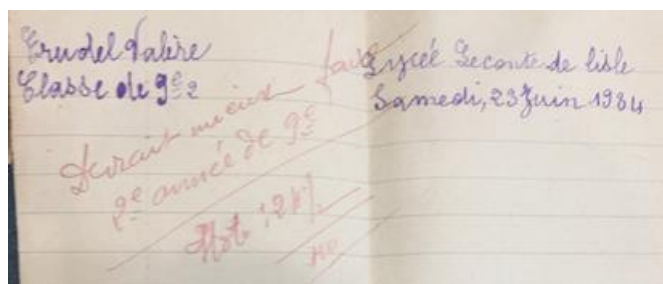 Trudel Valère
Classe de 9e 2
Lycée Leconte de lisle
Samedi, 23 Juin 1984
Devrait mieux faire
2e année de 9e
Note : 2